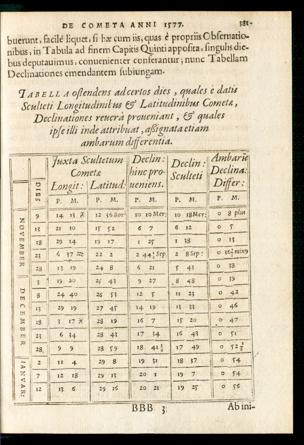 DE COMETA ANNI 1577. 381
buerunt, facilè liquet, si hæc cum iis, quas è propriis Observatio-
nibus, in Tabula ad finem Capitis Quinti apposita, singulis die-
bus deputavimus, convenienter conferantur; nunc Tabellam
Declinationes emendantem subjungam.
TABELLA ostendens ad certos dies, quales è datis
Sculteti Longitudinibus & Latitudinibus Cometæ,
Declinationes reverà proveniant, & quales
ipse illi inde attribuat, assignata etiam
ambarum differentia.
DIES
Juxta Scultetum Cometæ
Longit: Latitud:
Declin: hinc proveniens.
Declin: Sculteti
Ambarū Declina: Differ:
P. M. P. M. P. M. P. M. P. M.
NOVEMBER
9 14 13 12 56 Sep: 10 10 Mer: 10 18 Mer: 0 8 plus
13 21 10 15 52 6 7 6 12 0 5
18 29 14 19 17 1 25 1 38 0 13
23 6 37 22 2 2 44½ Sep: 2 8 Sep: 0 36½ min9
28 13 19 24 8 6 21 5 43 0 38
DECEMBER
3 19 20 25 43 9 27 8 48 0 39
8 24 40 25 53 12 5 11 23 0 42
13 29 19 27 45 14 19 13 33 0 46
18 3 17 28 19 16 7 15 20 0 47
23 6 34 28 43 17 34 16 43 0 51
28 9 9 28 59 18 41½ 17 49 0 52½
JANVAR:
2 11 4 29 8 19 31 18 37 0 54
7 12 18 29 13 20 1 19 7 0 54
12 13 6 29 16 20 21 19 25 0 56
BBB 3 Ab ini-